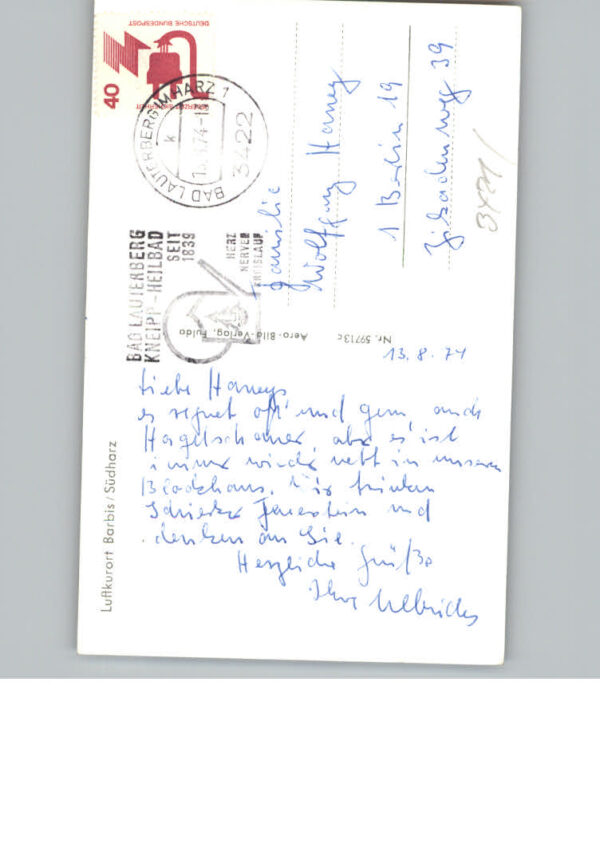 DEUTSCHE BUNDESPOST
40
BAD LAUTERBERG IM HARZ 1
k
74-18
3422
BAD LAUTERBERG
KNEIPP-HEILBAD
SEIT
1839
HERZ
NERVEN
KREISLAUF
Familie
Wolfgang Haney
1 Berlin 19
Zikadenweg 39
Nr. 59713c
Aero-Bild-Verlag, Fulda
13.8.74
Liebe Haneys
es regnet oft und gern, auch
Hagelschauer, aber es ist
immer wieder nett in unserem
Blockhaus. Wir trinken
Schierker Feuerstein und
denken an Sie.
Herzliche Grüße
Ihre Ulbrichs
Luftkurort Barbis/Südharz